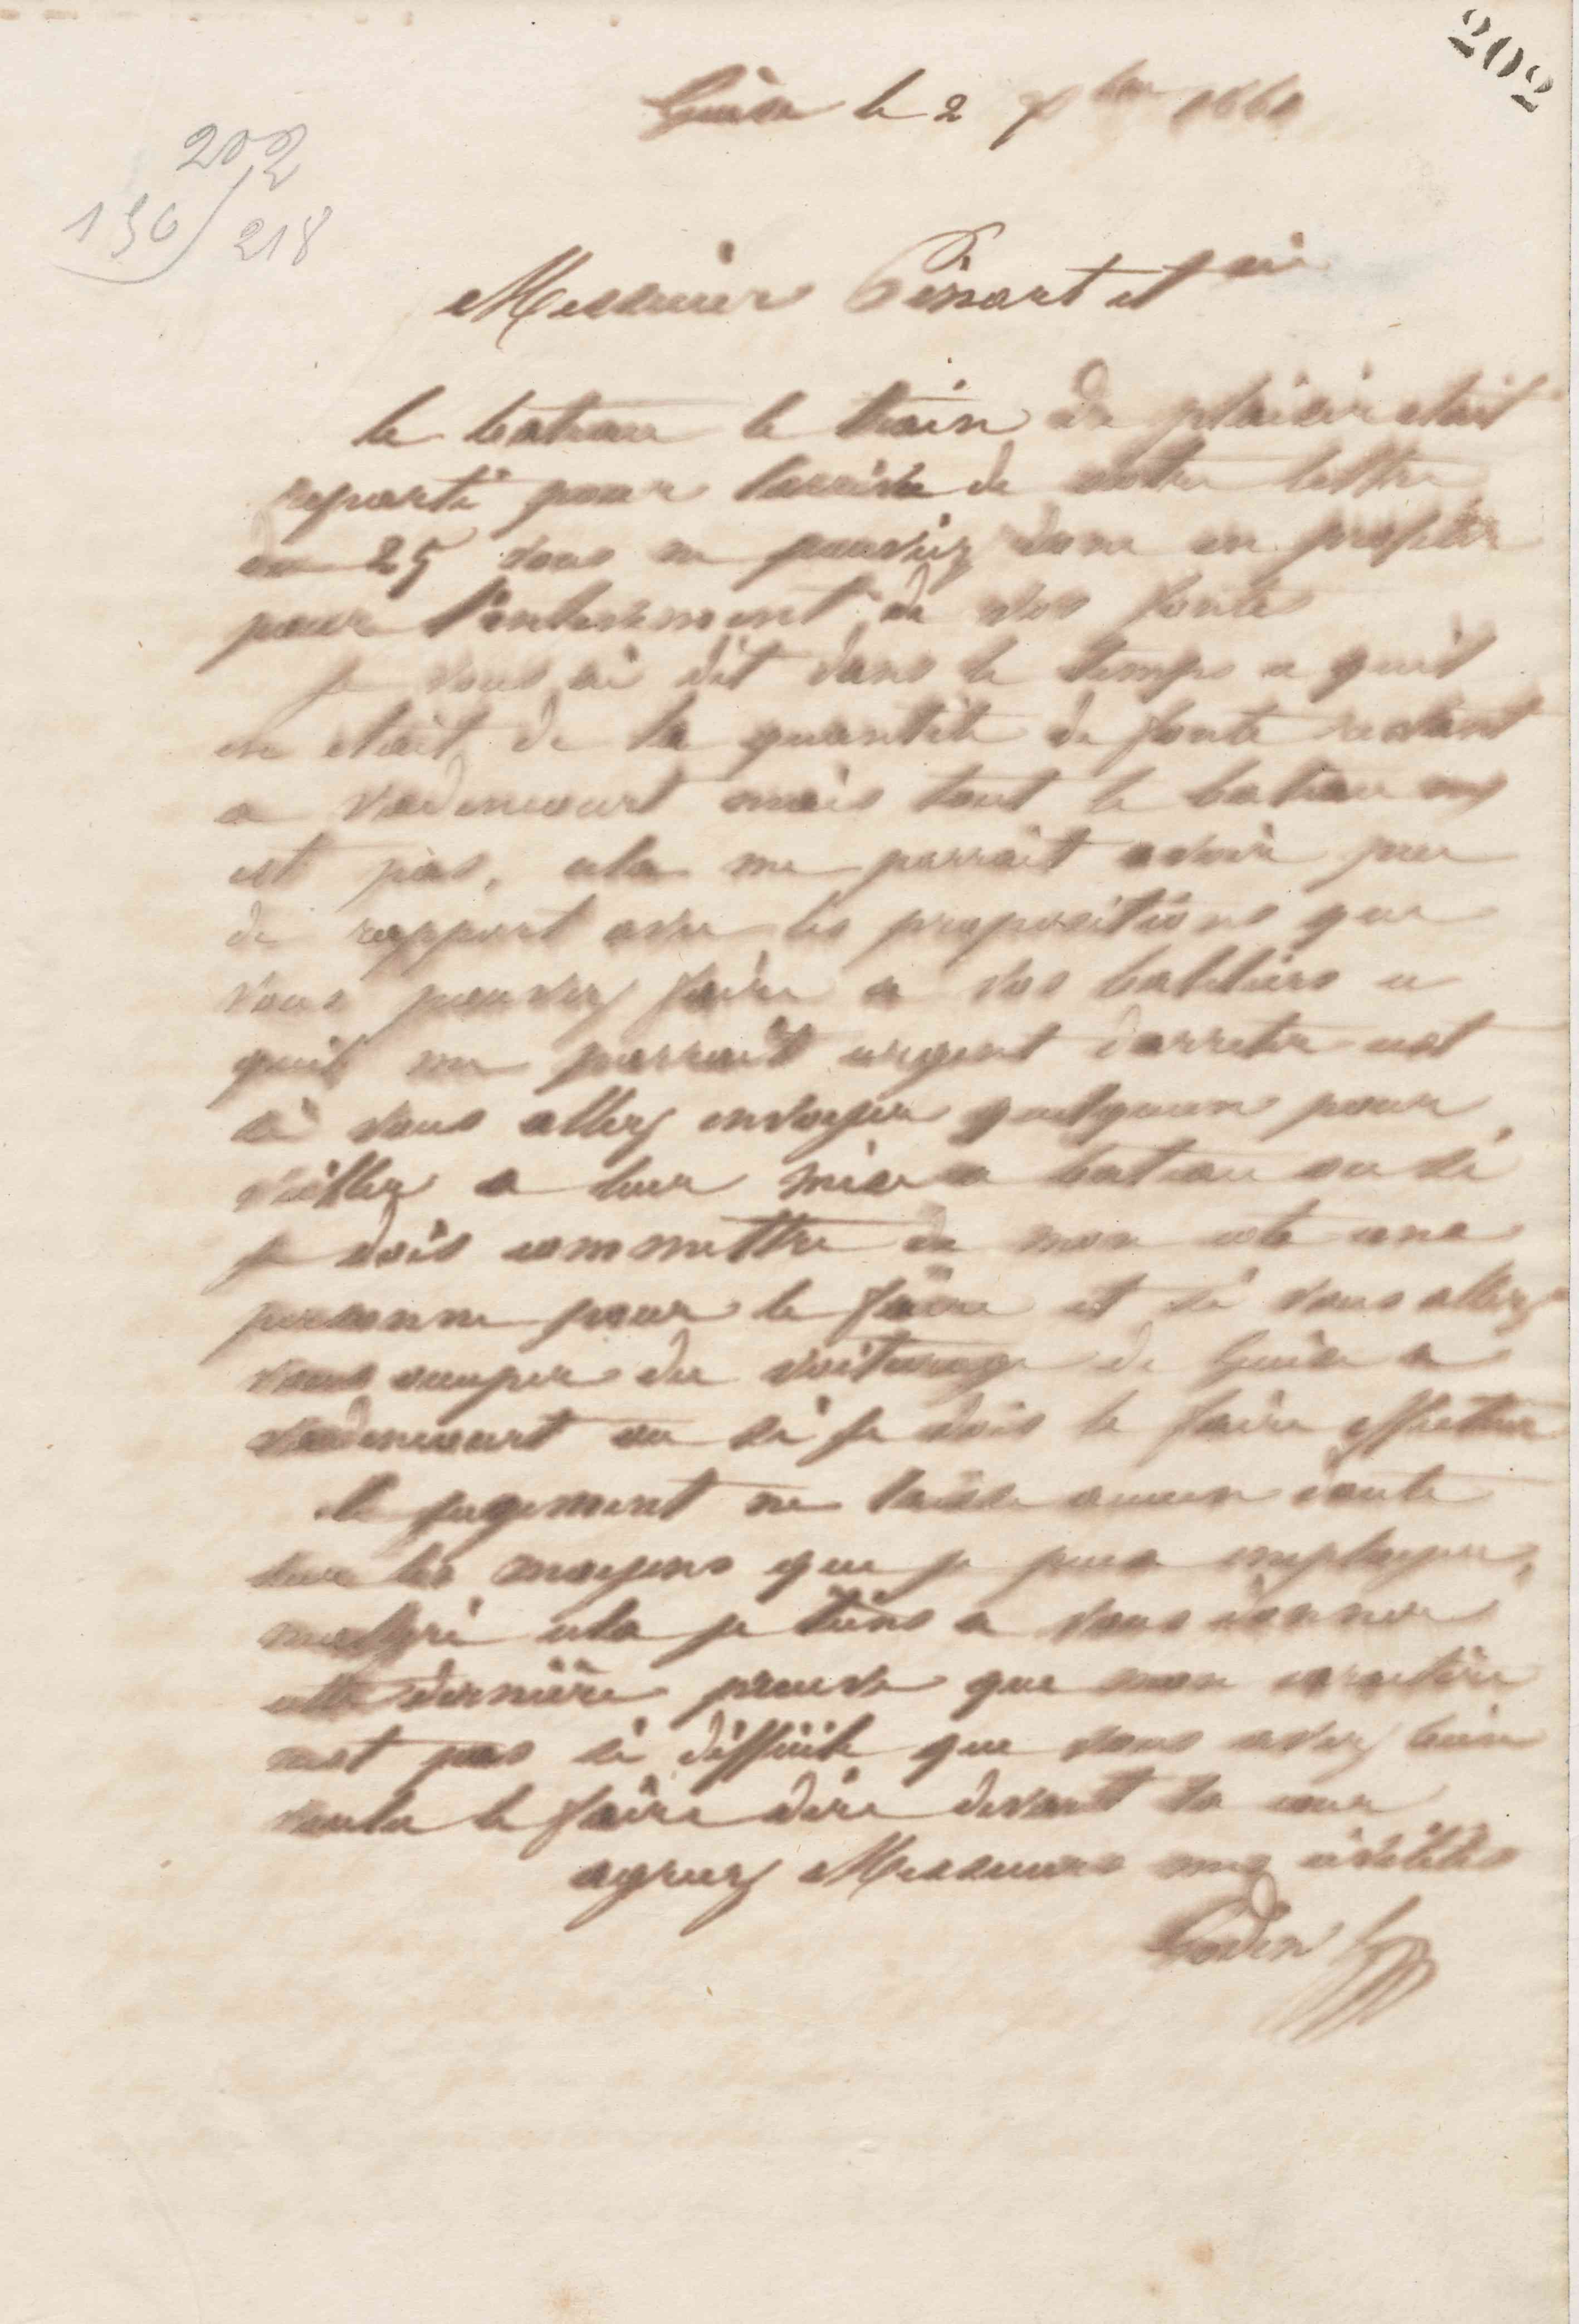 202
Guise le 2 7bre 1860
202
130/218
Messieurs Pinart et cie
le bateau le train de plaisir etait
reparti pour larrivée de votre lettre
du 25 vous ne pouviez donc en profiter
pour l'enlevement de vos fonte
je vous ai dit dans le temps ce quil
en etait de la quantité de fonte restant
a vadencourt mais tout le bateau ny
est pas, cela me parrait avoir peu
de rapport avec les propositions que
vous pouvez faire a vos batteliers ce
quil me parrait urgent darreter cest
si vous allez envoyer quelquun pour
veiller a leur mise a bateau ou si
je dois commettre de mon coté une
personne pour le faire et si vous allez
vous occuper du voiturage de Guise a
vadencourt ou si je dois le faire effectuer
le jugement ne laisse aucun doute
sur les moyens que je puis employer,
malgré cela je tiens a vous donner
cette dernière preuve que mon caractère
nest pas si difficile que vous avez bien
voulu le faire dire devant la cour
agreez Messieurs mes civilités
Godin